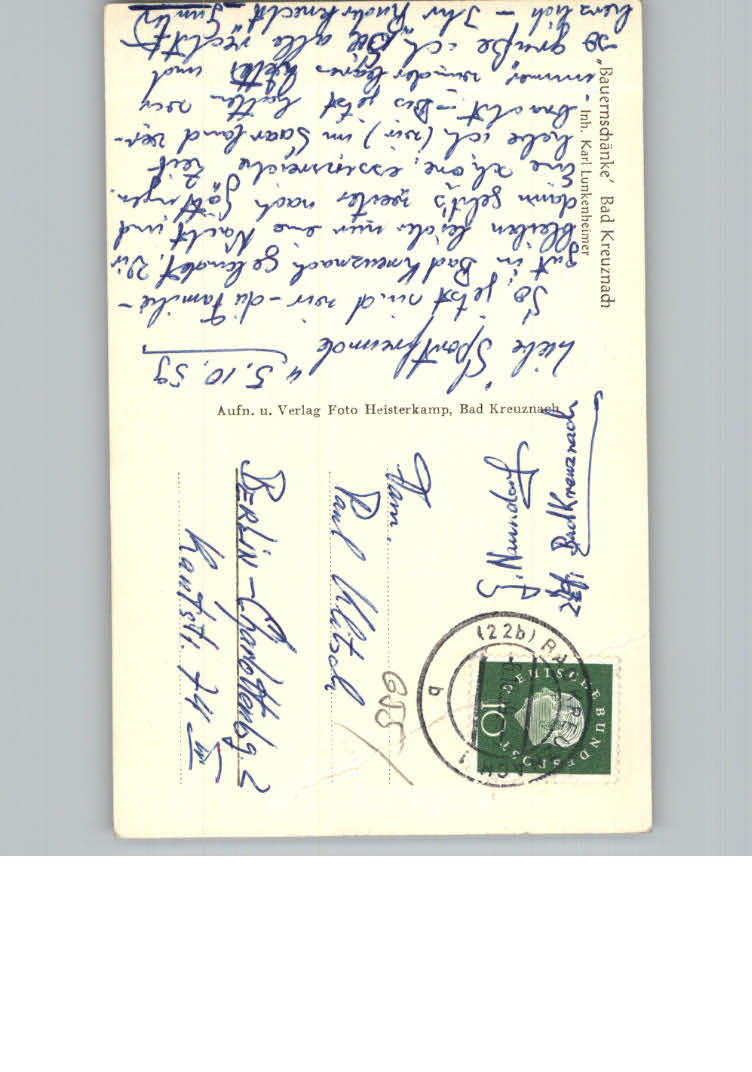 „Bauernschänke‘ Bad Kreuznach
Inh. Karl Lunkenheimer
5.10.59
Liebe Sportfreunde
So, jetzt sind wir – die Familie –
gut in Bad Kreuznach gelandet. Wir
bleiben leider nur eine Nacht und
dann geht's weiter nach Göttingen.
Eine schöne, Zeit
habe ich (wir) im Saarland ver-
bracht. – Bis jetzt hatten wir
immer wunderbares Wetter und
so grüße ich Sie alle recht
herzlich – Ihr Ruderknecht
Aufn. u. Verlag Foto Heisterkamp, Bad Kreuznach
Bad Kreuznach
Fam.
Paul
BERLIN – Charlottenbg 2
Kantstr. 74 III
655
(22b) BAD KREUZNACH 1
q
DEUTSCHE BUNDESPOST
10